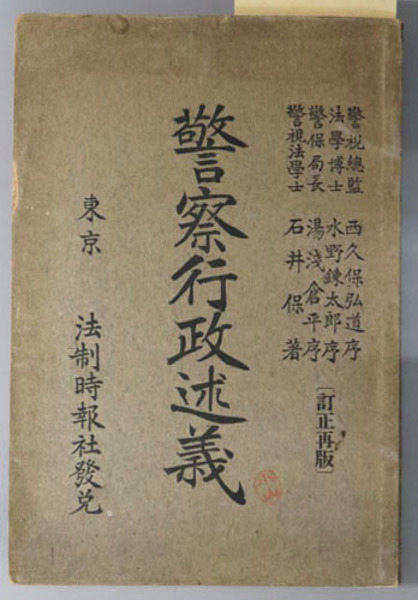 警視總監 西久保弘道序
法學博士 水野錬太郎序
警保局長 湯淺倉平序
警視法學士 石井保著
〔訂正再版〕
警察行政述義
東京 法制時報社發兌